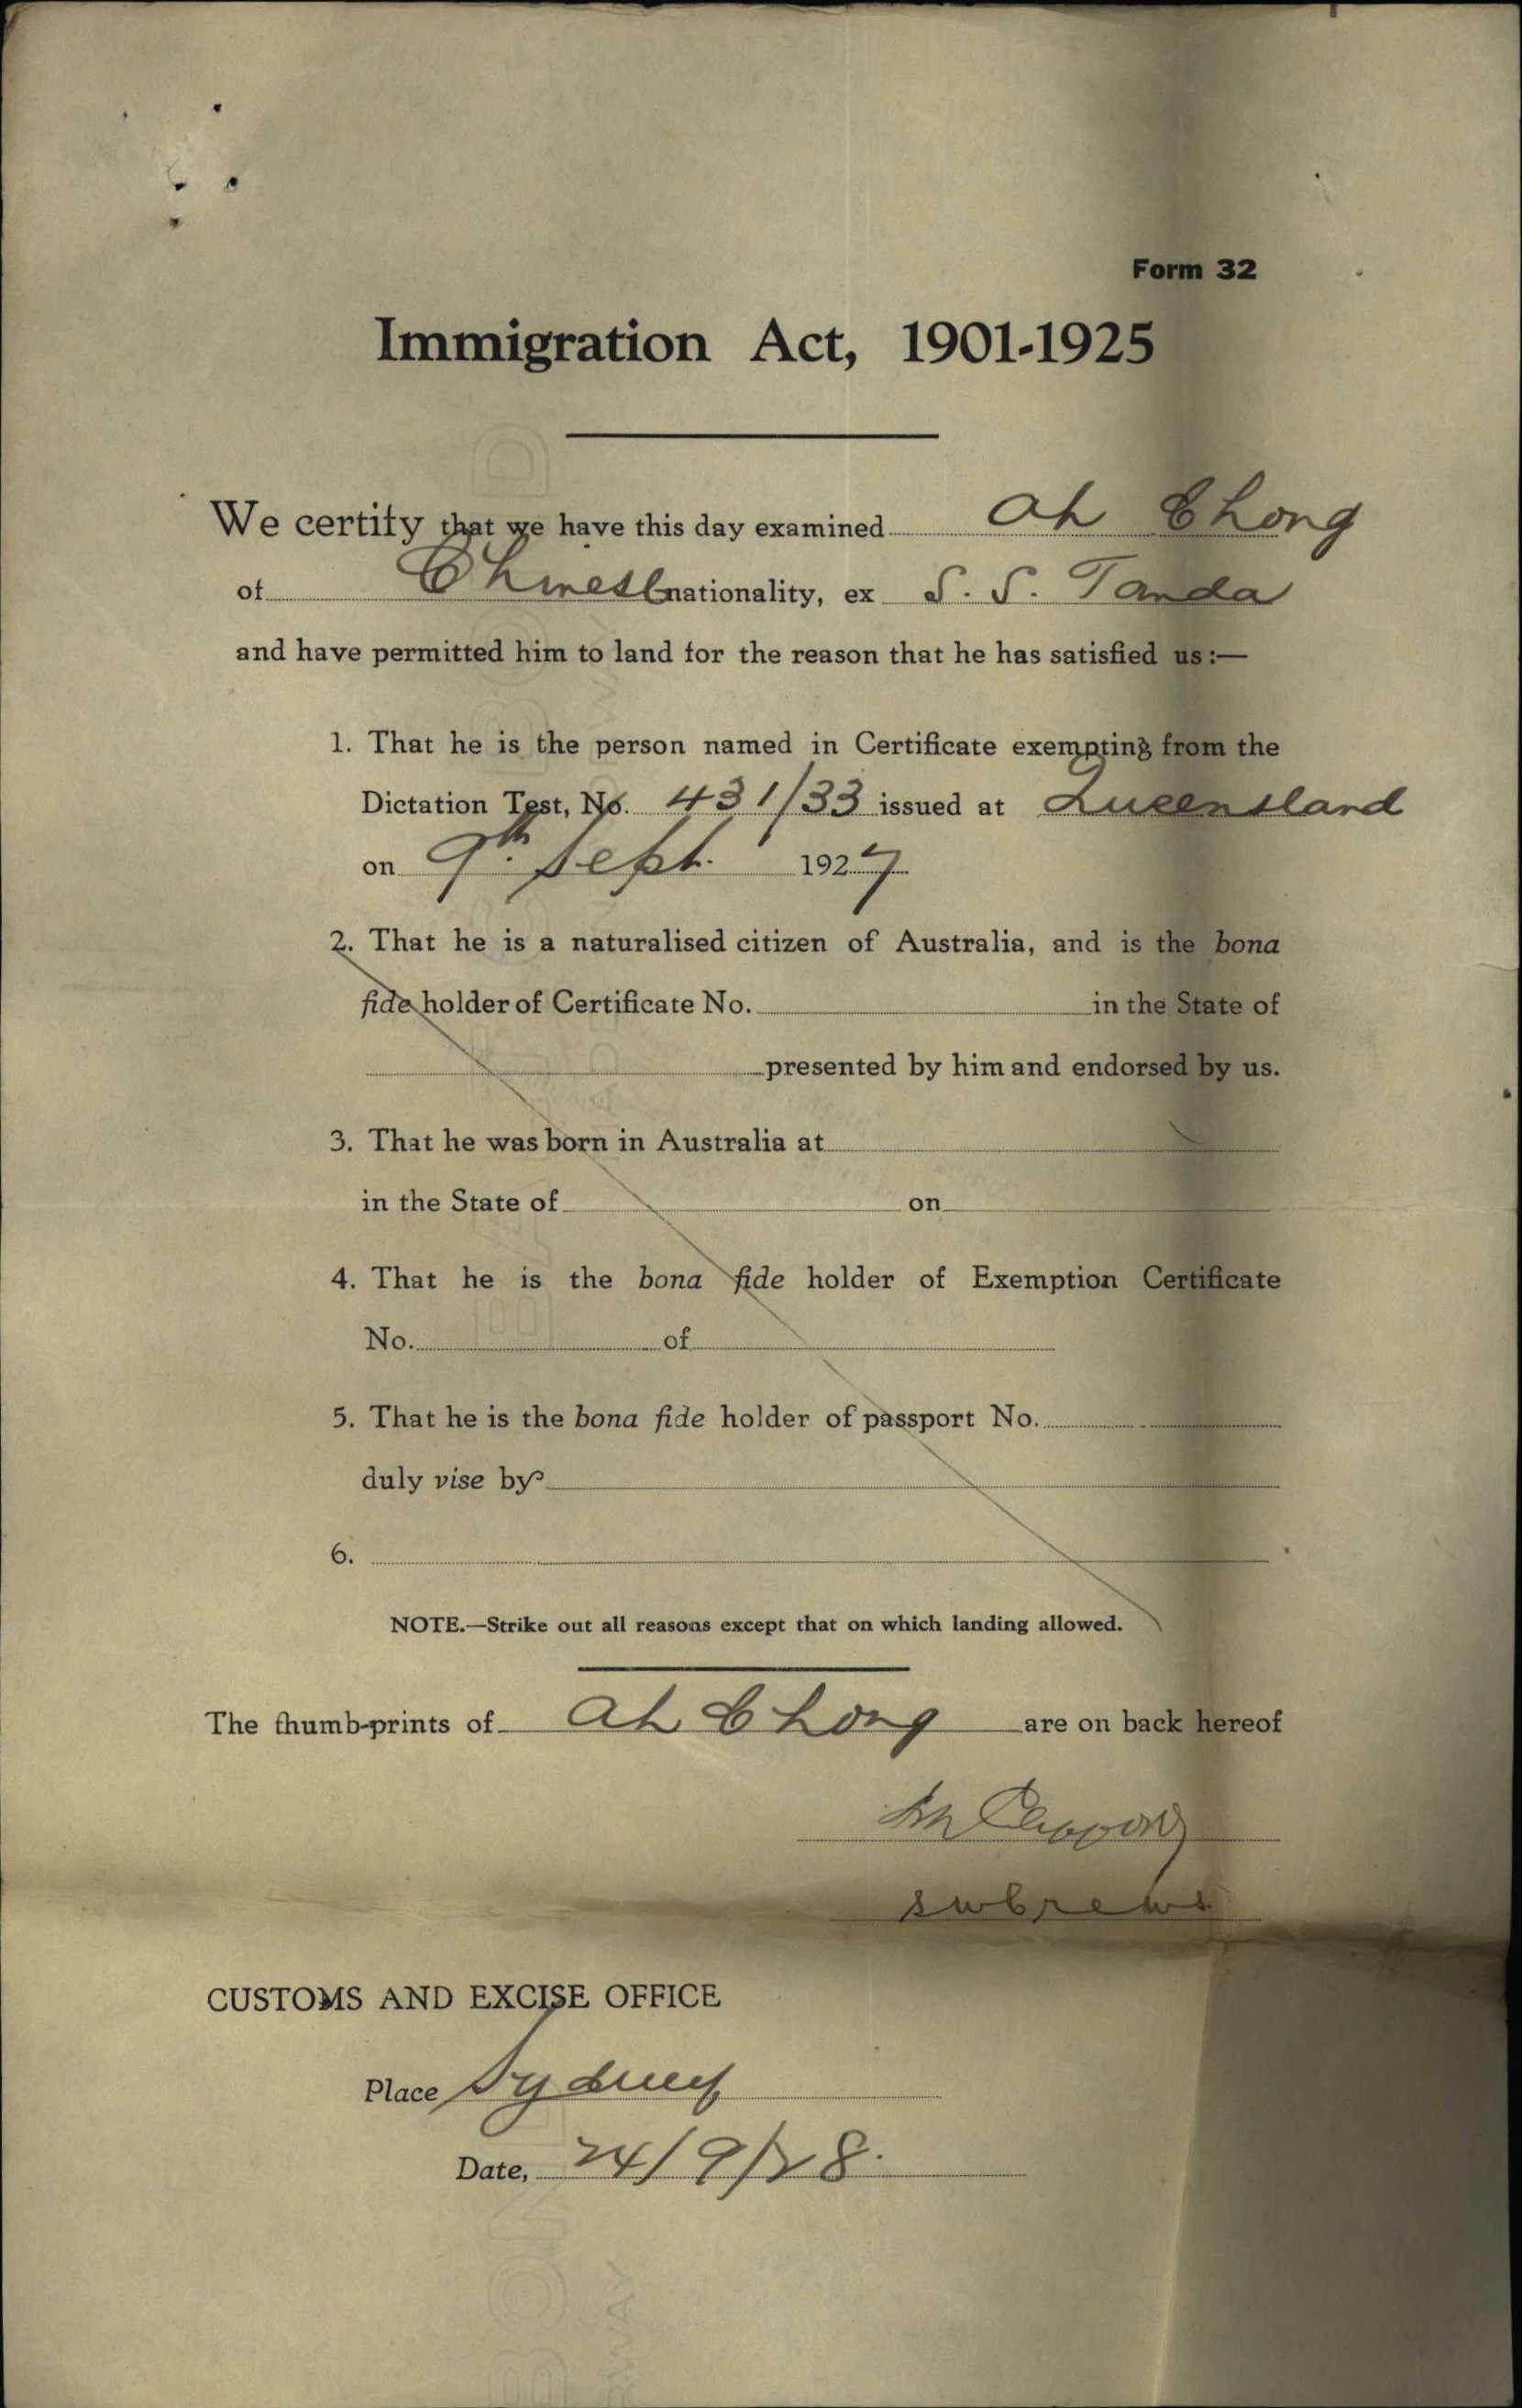 Form 32
Immigration Act, 1901-1925
We certify that we have this day examined Ah Chong
of Chinese nationality, ex S. S. Tanda
and have permitted him to land for the reason that he has satisfied us:—
1. That he is the person named in Certificate exempting from the
Dictation Test, No. 431/33 issued at Queensland
on 9th. Sept. 1927
2. That he is a naturalised citizen of Australia, and is the bona
fide holder of Certificate No. in the State of
presented by him and endorsed by us.
3. That he was born in Australia at
in the State of on
4. That he is the bona fide holder of Exemption Certificate
No. of
5. That he is the bona fide holder of passport No.
duly vise by
6.
NOTE.—Strike out all reasons except that on which landing allowed.
The thumb-prints of Ah Chong are on back hereof
CUSTOMS AND EXCISE OFFICE
Place Sydney
Date, 24/9/28.